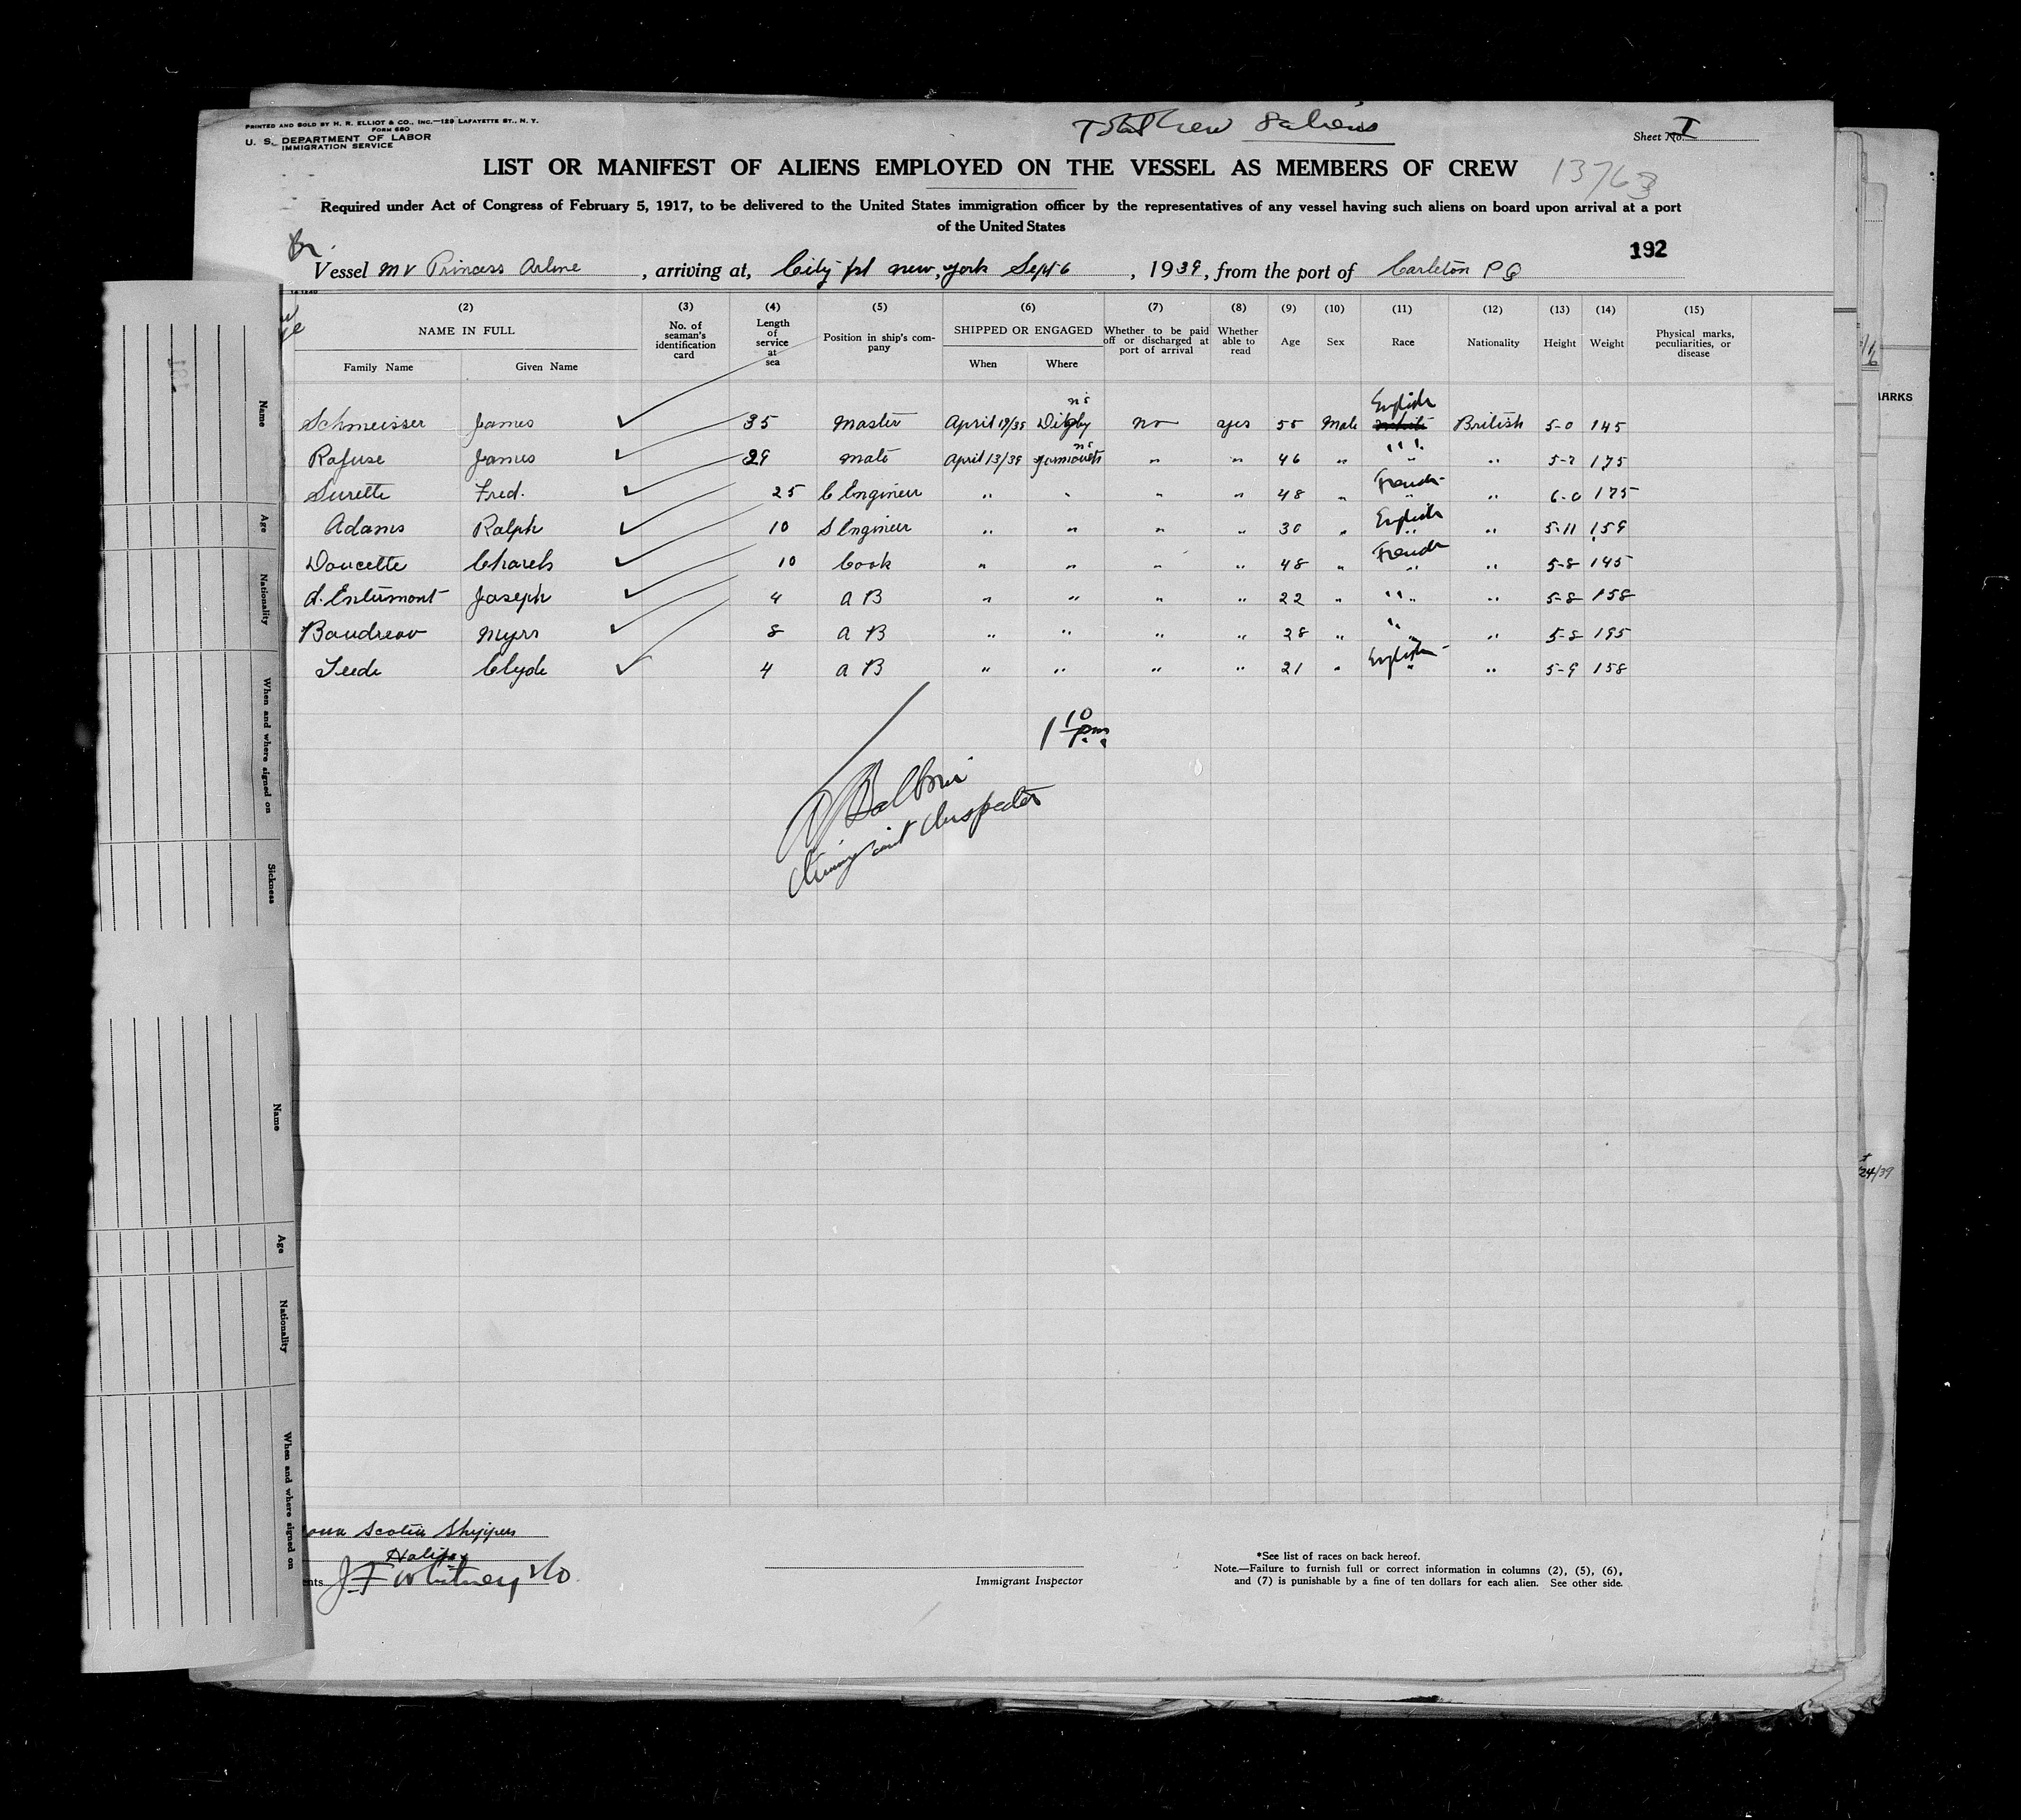 PRINTED AND SOLD BY H. R. ELLIOT & CO., INC.—129 LAFAYETTE ST., N. Y.
FORM 680
U. S. DEPARTMENT OF LABOR
IMMIGRATION SERVICE
Total Crew 8 aliens
Sheet No. I
LIST OR MANIFEST OF ALIENS EMPLOYED ON THE VESSEL AS MEMBERS OF CREW
13763
Required under Act of Congress of February 5, 1917, to be delivered to the United States immigration officer by the representatives of any vessel having such aliens on board upon arrival at a port
of the United States
192
Vessel MV Princess Arline, arriving at, City pt new, york Sept 6, 1939, from the port of Carleton P Q
(2) (3) (4) (5) (6) (7) (8) (9) (10) (11) (12) (13) (14) (15)
NAME IN FULL No. of seaman's identification card Length of service at sea Position in ship's company SHIPPED OR ENGAGED Whether to be paid off or discharged at port of arrival Whether able to read Age Sex Race Nationality Height Weight Physical marks, peculiarities, or disease
Family Name Given Name When Where
Schmeisser James 35 Master April 19/39 Digby NS no yes 55 Male English British 5-0 145
Rafuse James 29 Mate April 13/39 Yarmouth NS " " 46 " " " 5-7 175
Surette Fred. 25 C Engineer " " " " 48 " French " 6-0 175
Adams Ralph 10 S Engineer " " " " 30 " English " 5-11 159
Doucette Charels 10 Cook " " " " 48 " French " 5-8 145
d. Entremont Joseph 4 A B " " " " 22 " " " 5-8 158
Boudreau Myrs 8 A B " " " " 28 " " " 5-8 195
Clyde 4 A B " " " " 21 " English " 5-9 158
1 10 pm
Immigrant Inspector
Scotia Shippers
Halifax
J F Whitney & Co.
Immigrant Inspector
*See list of races on back hereof.
Note.—Failure to furnish full or correct information in columns (2), (5), (6),
and (7) is punishable by a fine of ten dollars for each alien. See other side.
Name
Age
Nationality
When and where signed on
Sickness
Name
Age
Nationality
When and where signed on
ARKS
24/39